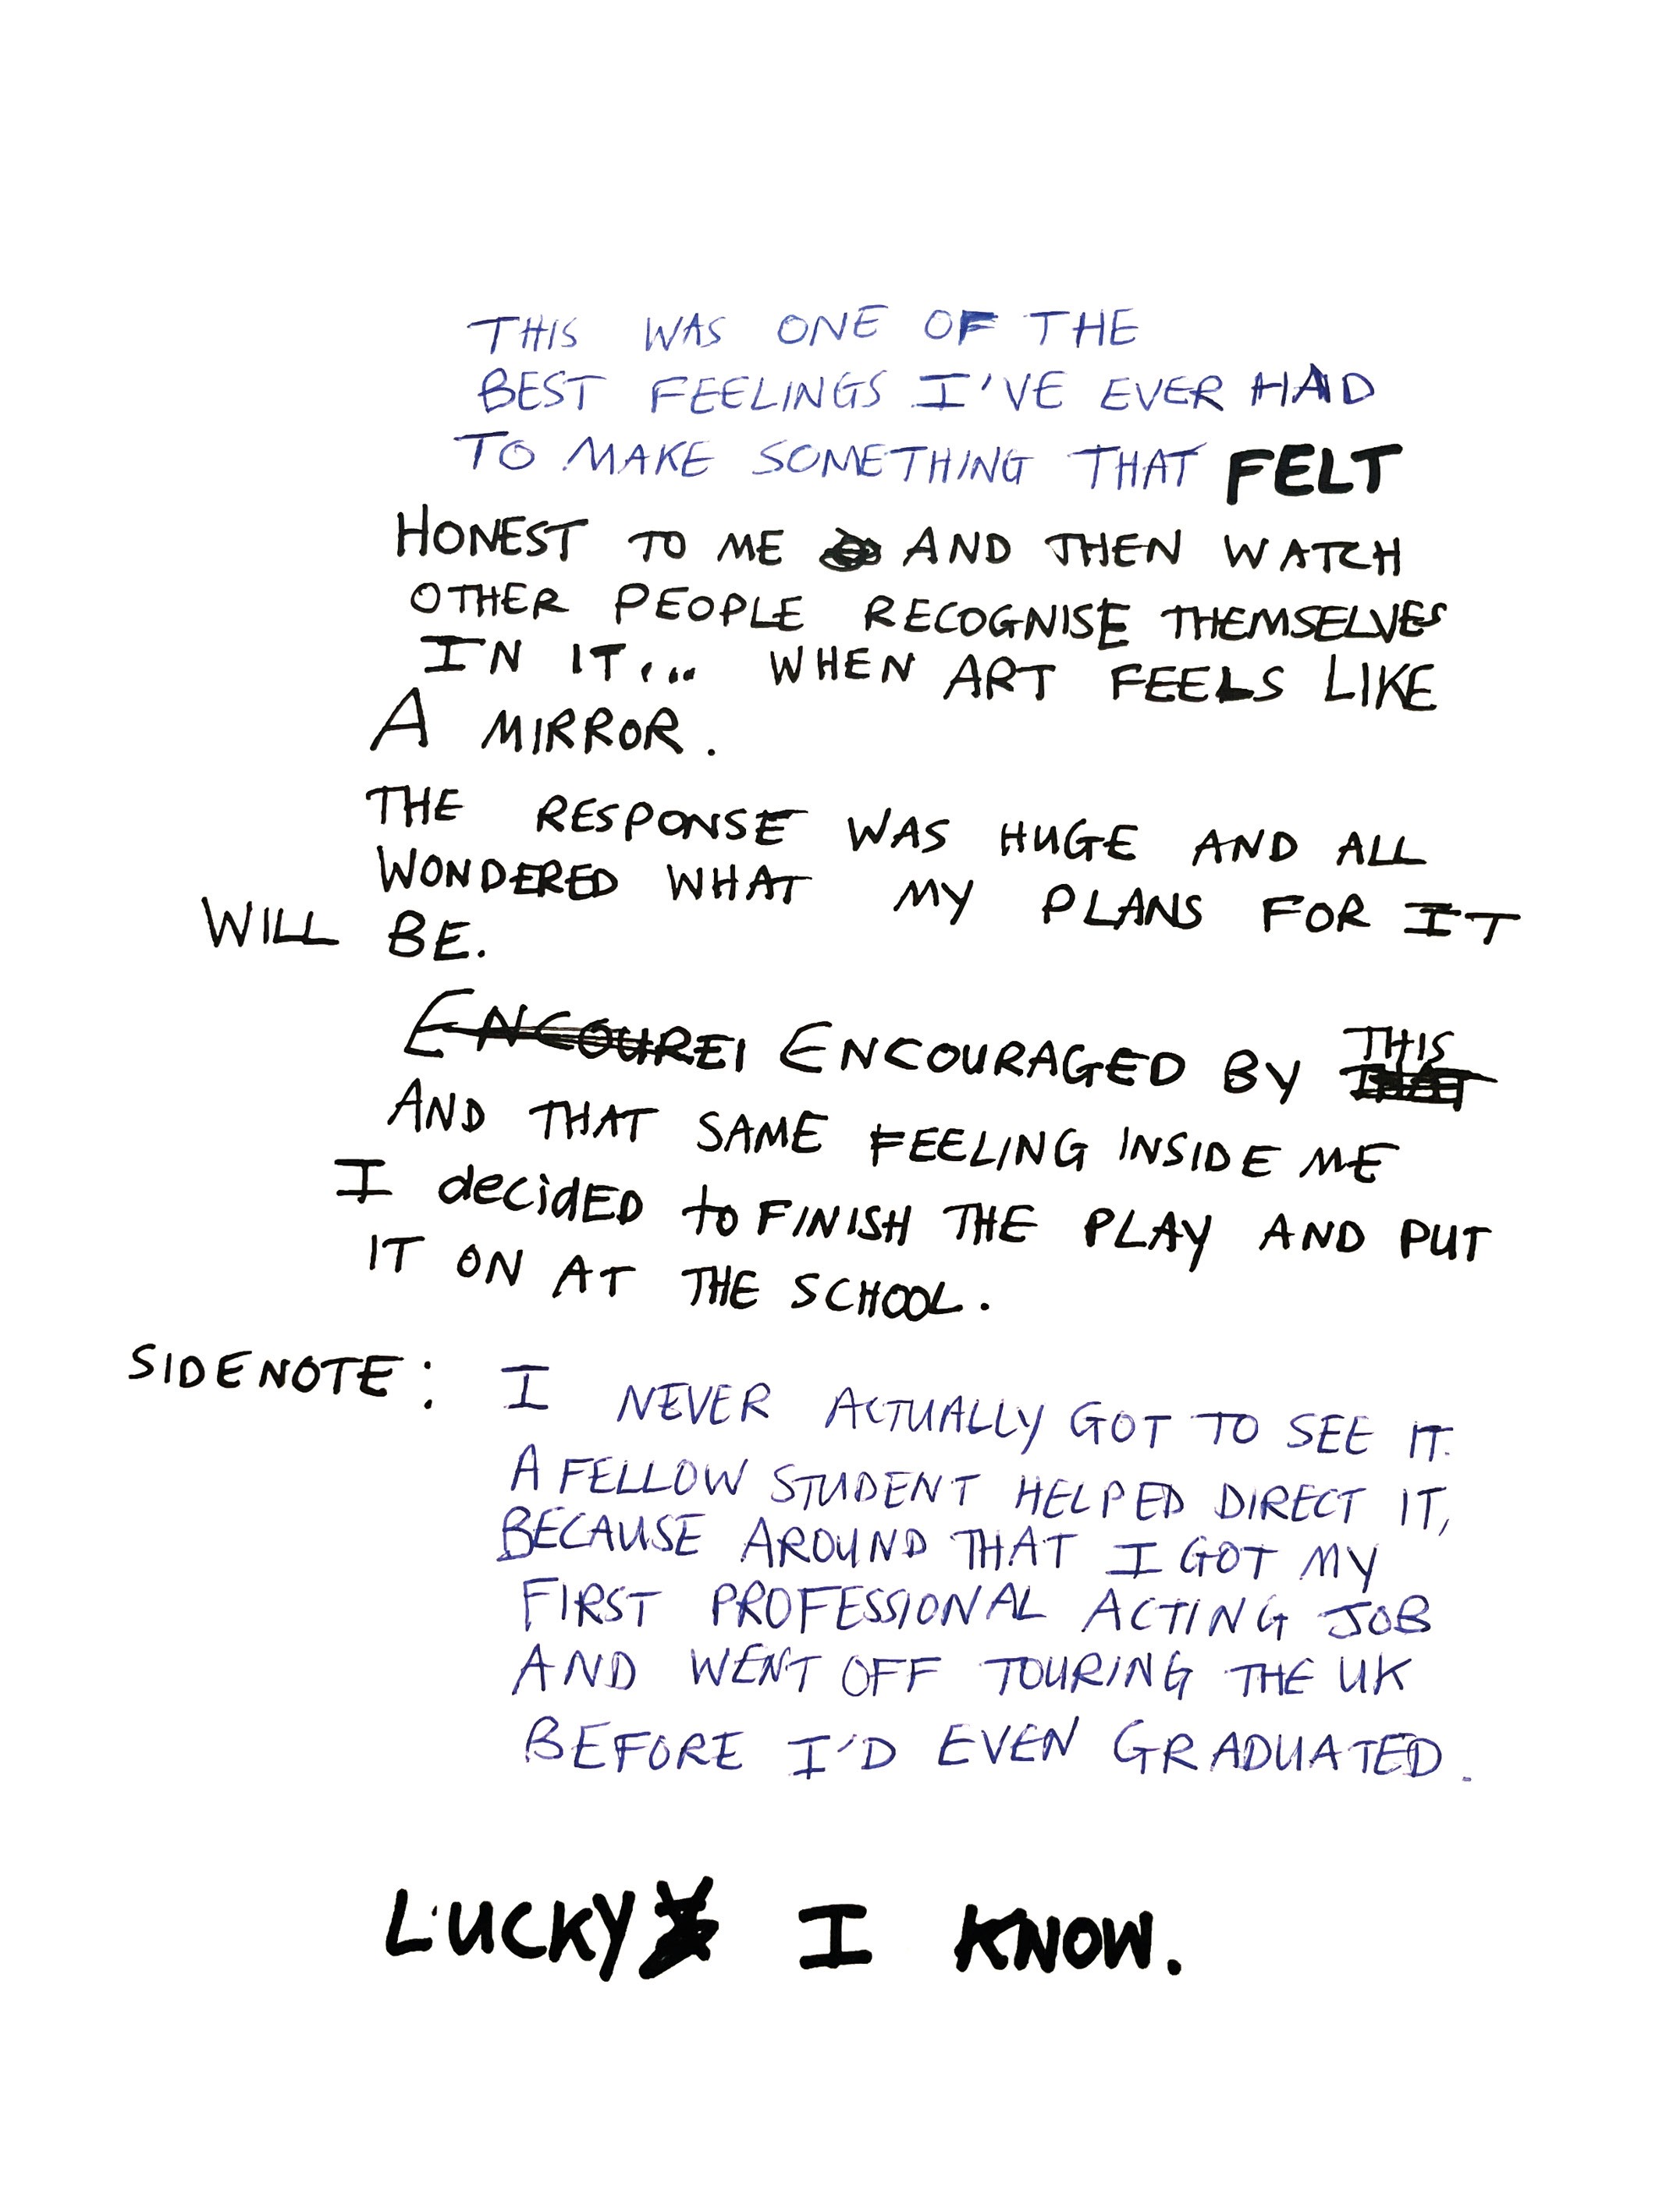 THIS WAS ONE OF THE
BEST FEELINGS I'VE EVER HAD
TO MAKE SOMETHING THAT FELT
HONEST TO ME AND THEN WATCH
OTHER PEOPLE RECOGNISE THEMSELVES
IN IT... WHEN ART FEELS LIKE
A MIRROR.
THE RESPONSE WAS HUGE AND ALL
WONDERED WHAT MY PLANS FOR IT
WILL BE.
ENCOUREI ENCOURAGED BY THIS
AND THAT SAME FEELING INSIDE ME
I deciDED to FINISH THE PLAY AND PUT
IT ON AT THE SCHOOL.
SIDENOTE: I NEVER ACTUALLY GOT TO SEE IT.
A FELLOW STUDENT HELPED DIRECT IT,
BECAUSE AROUND THAT I GOT MY
FIRST PROFESSIONAL ACTING JOB
AND WENT OFF TOURING THE UK
BEFORE I'D EVEN GRADUATED.
LUCKY I KNOW.